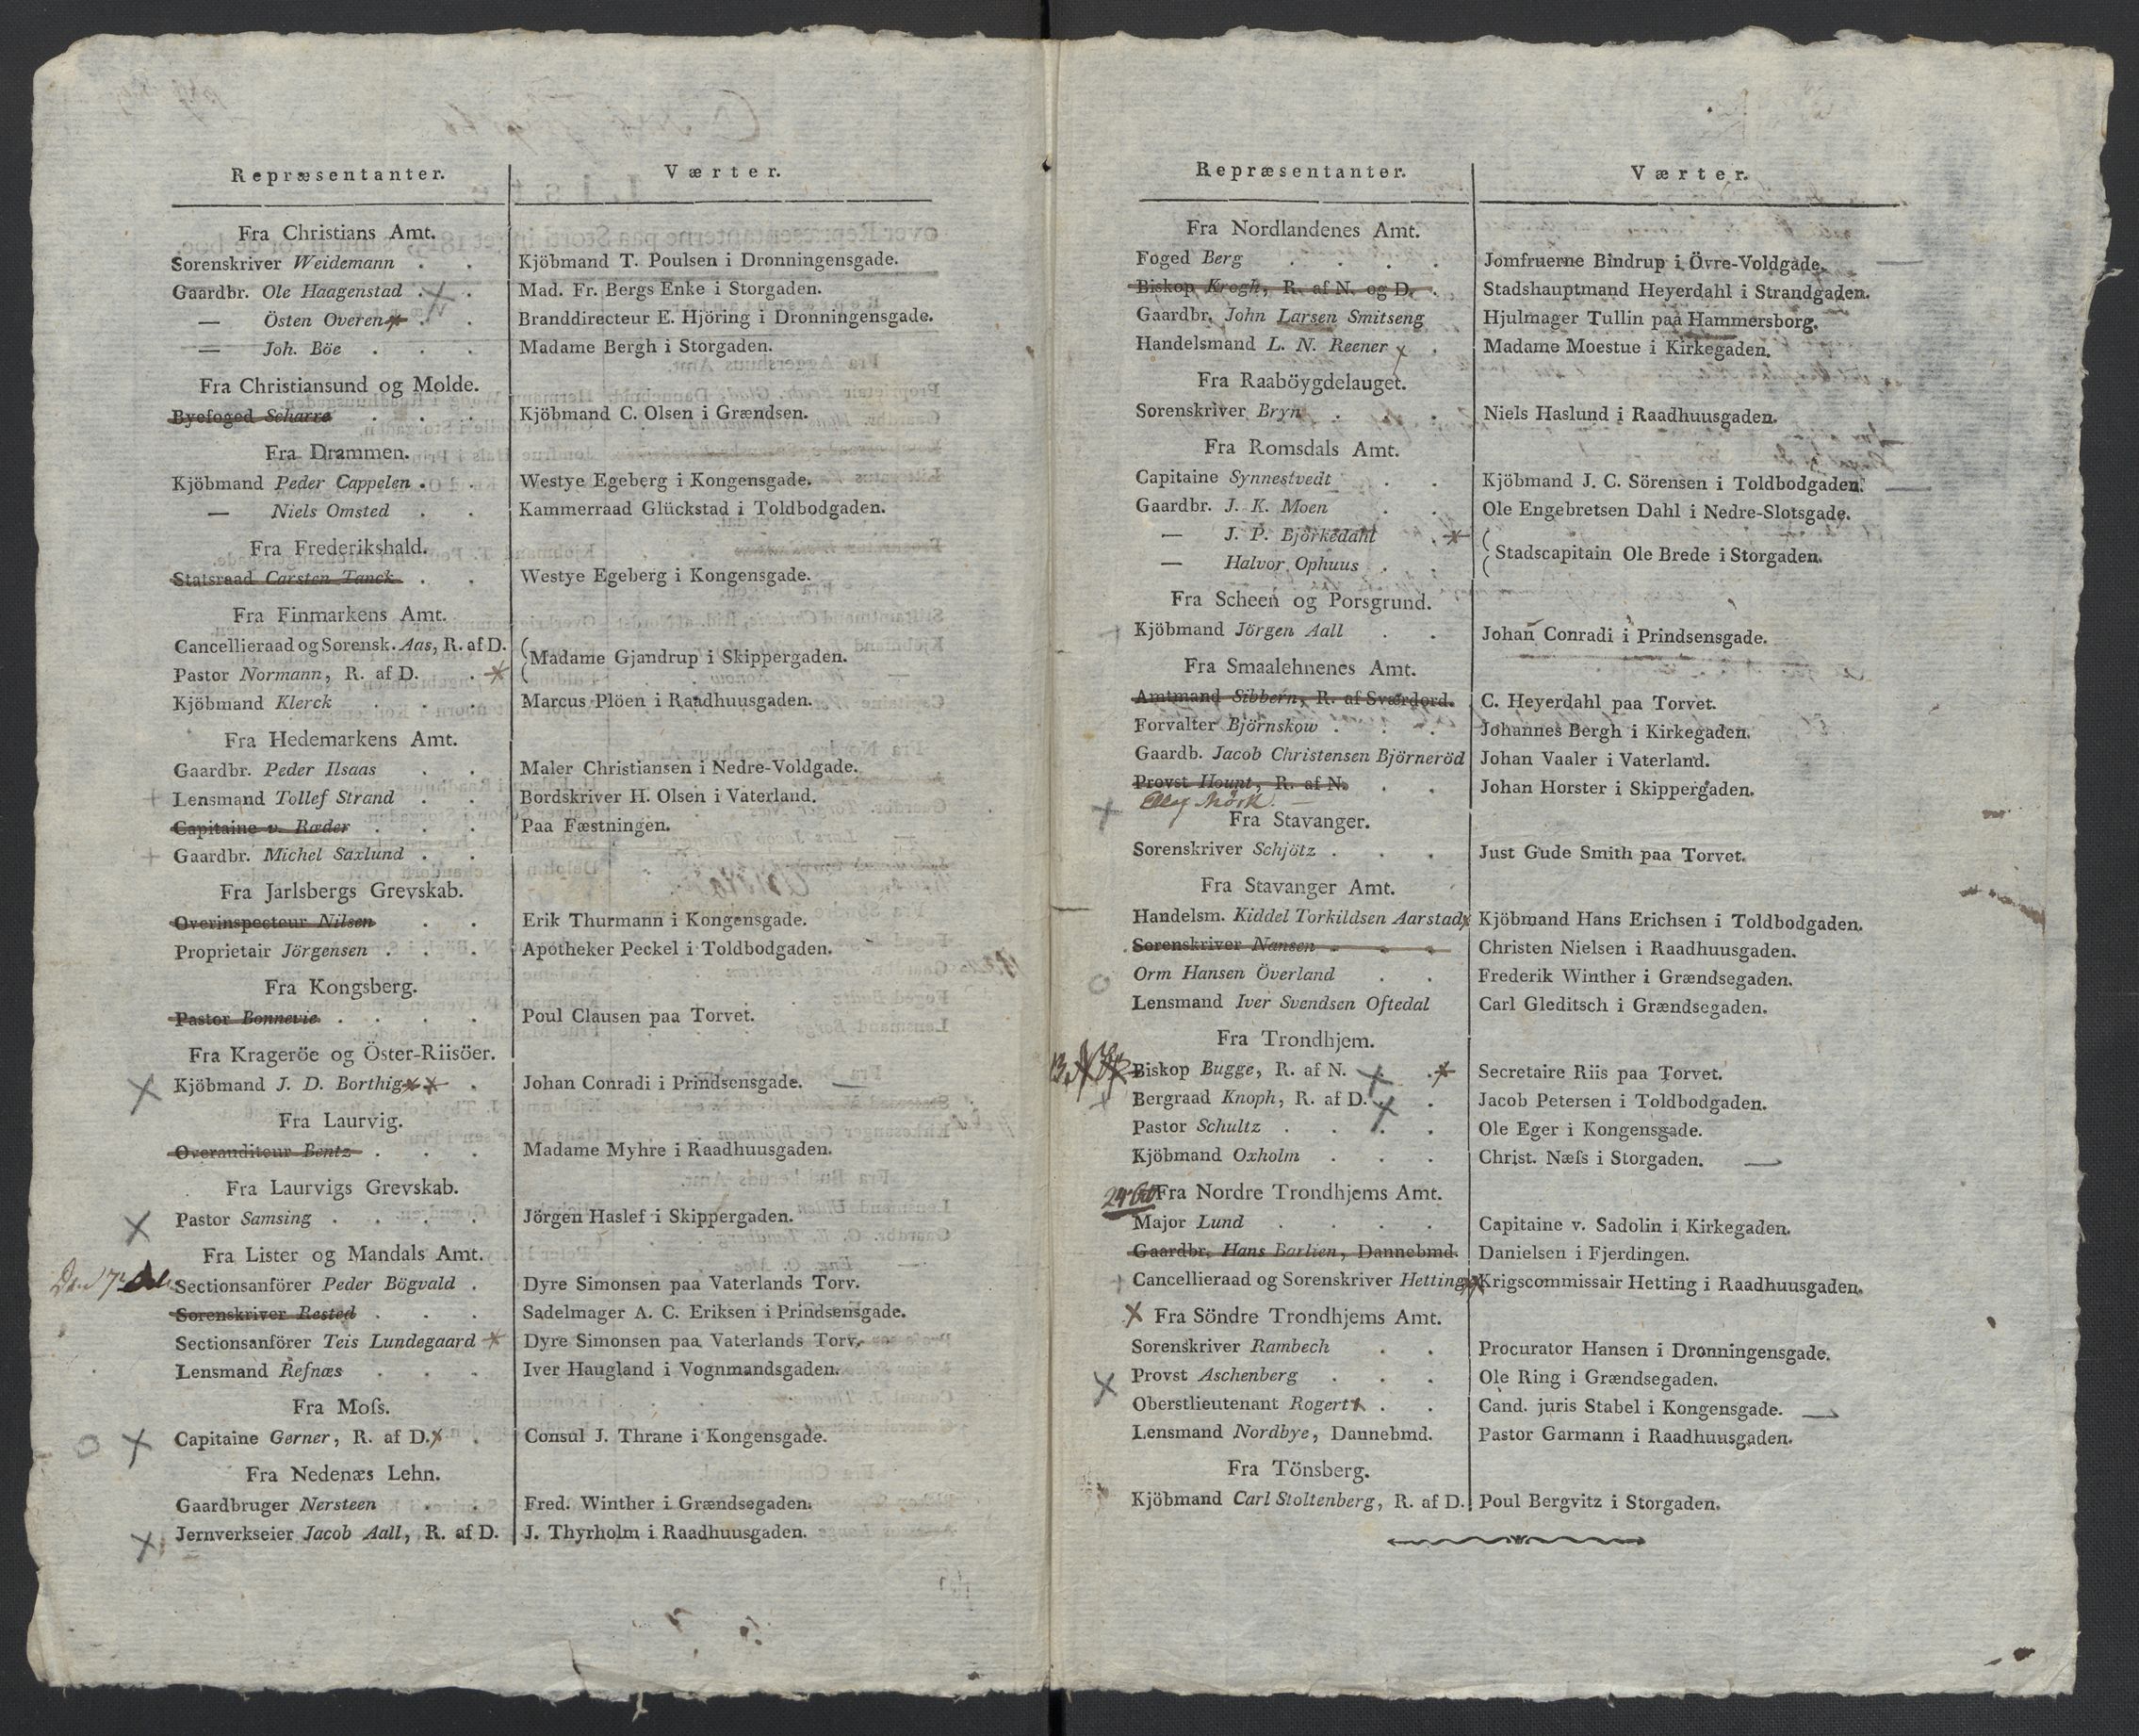 Repræsentanter. Værter.
Fra Christians Amt.
Sorenskriver Weidemann . . Kjöbmand T. Poulsen i Dronningensgade.
Gaardbr. Ole Haagenstad . . Mad. Fr. Bergs Enke i Storgaden.
— Östen Overen . . Branddirecteur E. Hjöring i Dronningensgade.
— Joh. Böe . . . Madame Bergh i Storgaden.
Fra Christiansund og Molde.
Byefoged Scharre . . . Kjöbmand C. Olsen i Grændsen.
Fra Drammen.
Kjöbmand Peder Cappelen . . Westye Egeberg i Kongensgade.
— Niels Omsted . . Kammerraad Glückstad i Toldbodgaden.
Fra Frederikshald.
Statsraad Carsten Tanck . . Westye Egeberg i Kongensgade.
Fra Finmarkens Amt.
Cancellieraad og Sorensk. Aas, R. af D.
Madame Gjandrup i Skippergaden.
Pastor Normann, R. af D. .
Kjöbmand Klerck . . . Marcus Plöen i Raadhuusgaden.
Fra Hedemarkens Amt.
Gaardbr. Peder Ilsaas . . Maler Christiansen i Nedre-Voldgade.
Lensmand Tollef Strand . . Bordskriver H. Olsen i Vaterland.
Capitaine v. Ræder . . . Paa Fæstningen.
Gaardbr. Michel Saxlund . .
Fra Jarlsbergs Grevskab.
Overinspecteur Nilsen . . Erik Thurmann i Kongensgade.
Proprietair Jörgensen . . . Apotheker Peckel i Toldbodgaden.
Fra Kongsberg.
Pastor Bonnevie . . . . Poul Clausen paa Torvet.
Fra Krageröe og Öster-Riisöer.
Kjöbmand J. D. Borthig . Johan Conradi i Prindsensgade. —
Fra Laurvig.
Overauditeur Bentz . . . Madame Myhre i Raadhuusgaden.
Fra Laurvigs Grevskab.
Pastor Samsing . . . . Jörgen Haslef i Skippergaden.
Fra Lister og Mandals Amt.
Sectionsanförer Peder Bögvald . Dyre Simonsen paa Vaterlands Torv.
Sorenskriver Rested . . . Sadelmager A. C. Eriksen i Prindsensgade.
Sectionsanförer Teis Lundegaard Dyre Simonsen paa Vaterlands Torv.
Lensmand Refnæs . . . Iver Haugland i Vognmandsgaden.
Fra Moſs.
Capitaine Gerner, R. af D. . Consul J. Thrane i Kongensgade.
Fra Nedenæs Lehn.
Gaardbruger Nersteen . . Fred. Winther i Grændsegaden.
Jernverkseier Jacob Aall, R. af D. J. Thyrholm i Raadhuusgaden.
Repræsentanter. Værter.
Fra Nordlandenes Amt.
Foged Berg . . . . Jomfruerne Bindrup i Övre-Voldgade. —
Biskop Krogh, R. af N. og D. . Stadshauptmand Heyerdahl i Strandgaden.
Gaardbr. John Larsen Smitseng Hjulmager Tullin paa Hammersborg.
Handelsmand L. N. Reener . Madame Moestue i Kirkegaden.
Fra Raaböygdelauget.
Sorenskriver Bryn . . . Niels Haslund i Raadhuusgaden.
Fra Romsdals Amt.
Capitaine Synnestvedt . . Kjöbmand J. C. Sörensen i Toldbodgaden. —
Gaardbr. J. K. Moen . . Ole Engebretsen Dahl i Nedre-Slotsgade.
— J. P. Björkedahl .
Stadscapitain Ole Brede i Storgaden.
— Halvor Ophuus . .
Fra Scheen og Porsgrund.
Kjöbmand Jörgen Aall . . Johan Conradi i Prindsensgade.
Fra Smaalehnenes Amt.
Amtmand Sibbern, R. af Sværdord. C. Heyerdahl paa Torvet.
Forvalter Björnskow . . . Johannes Bergh i Kirkegaden.
Gaardb. Jacob Christensen Björneröd Johan Vaaler i Vaterland.
Provst Hount, R. af N. . . Johan Horster i Skippergaden.
Elly Mörk. —
Fra Stavanger.
Sorenskriver Schjötz . . . Just Gude Smith paa Torvet.
Fra Stavanger Amt.
Handelsm. Kiddel Torkildsen Aarstad Kjöbmand Hans Erichsen i Toldbodgaden.
Sorenskriver Nansen . . . Christen Nielsen i Raadhuusgaden.
Orm Hansen Överland . . Frederik Winther i Grændsegaden.
Lensmand Iver Svendsen Oftedal Carl Gleditsch i Grændsegaden.
Fra Trondhjem.
Biskop Bugge, R. af N. . Secretaire Riis paa Torvet.
Bergraad Knoph, R. af D. . Jacob Petersen i Toldbodgaden.
Pastor Schultz . . . . Ole Eger i Kongensgade.
Kjöbmand Oxholm . . . Christ. Næſs i Storgaden. —
Fra Nordre Trondhjems Amt.
Major Lund . . . . Capitaine v. Sadolin i Kirkegaden.
Gaardbr. Hans Barlien, Dannebmd. Danielsen i Fjerdingen.
Cancellieraad og Sorenskriver Hetting Krigscommissair Hetting i Raadhuusgaden.
Fra Söndre Trondhjems Amt.
Sorenskriver Rambech . . Procurator Hansen i Dronningensgade.
Provst Aschenberg . . . Ole Ring i Grændsegaden.
Oberstlieutenant Rogert . . Cand. juris Stabel i Kongensgade. —
Lensmand Nordbye, Dannebmd. Pastor Garmann i Raadhuusgaden.
Fra Tönsberg.
Kjöbmand Carl Stoltenberg, R. af D. Poul Bergvitz i Storgaden.